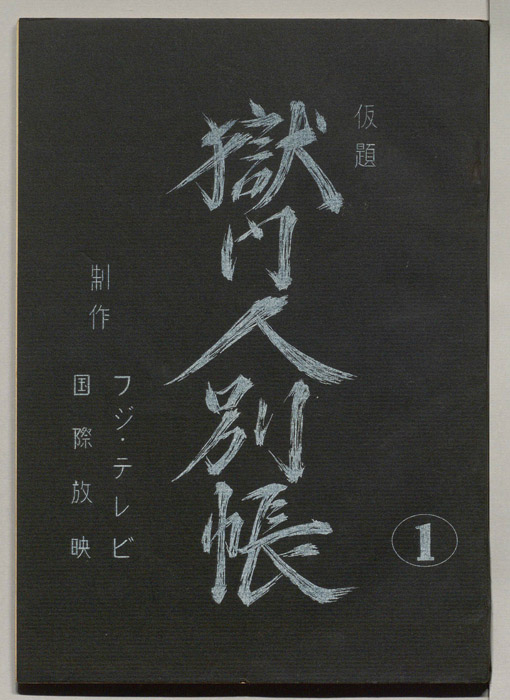 仮題
獄門人別帳
制作
フジ・テレビ
国際放映
1